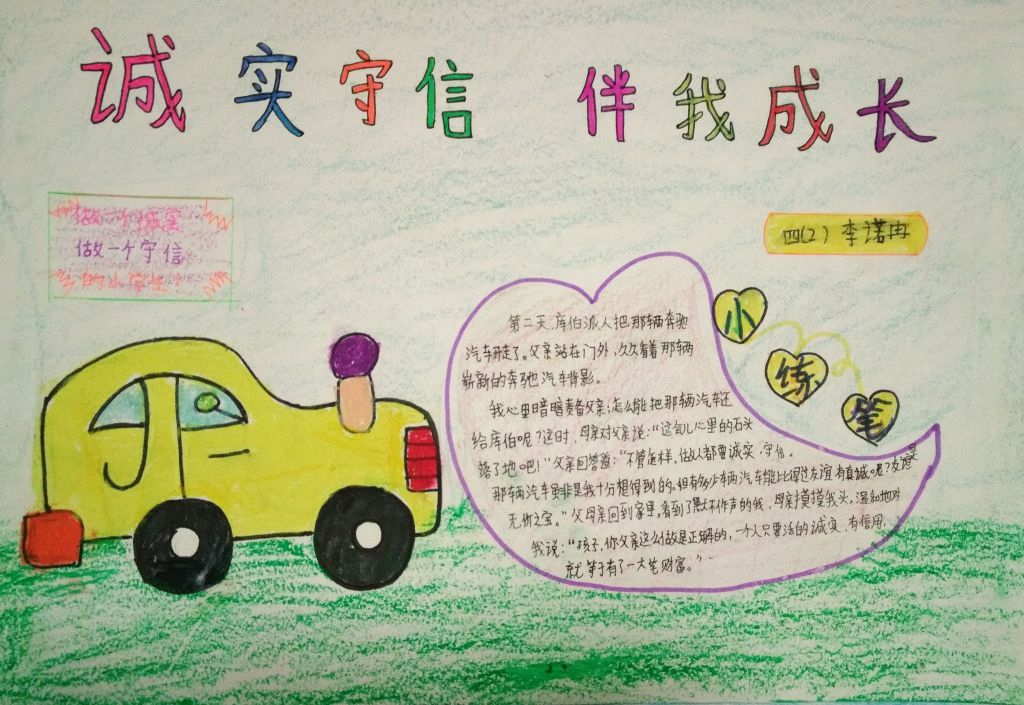 诚实守信 伴我成长
做一个诚实
做一个守信
的小学生!
四(2) 李诺冉
小练笔
第二天,库伯派人把那辆奔驰
汽车开走了。父亲站在门外,久久看着那辆
崭新的奔驰汽车背影。
我心里暗暗责备父亲:怎么能把那辆汽车还
给库伯呢?这时,母亲对父亲说:“这回心里的石头
落了地吧!”父亲回答道:“不管怎样,做人都要诚实,守信。
那辆汽车虽非是我十分想得到的,但有多少辆汽车能比得过友谊,有真诚呢?友谊是
无价之宝。”父母亲回到家里,看到了默不作声的我,母亲摸摸我头,温和地对
我说:“孩子,你父亲这么做是正确的,一个人只要活的诚实,有信用,
就等于有了一大笔财富。”